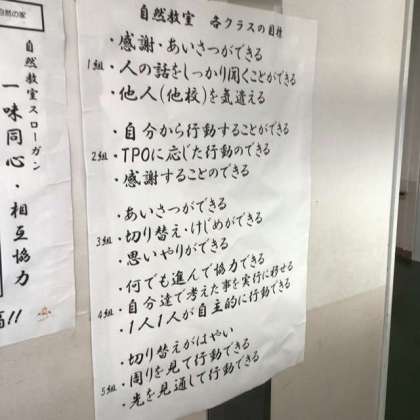 自然の家
自然教室スローガン
一味同心・相互協力
!!
自然教室 各クラスの目標
・感謝・あいさつができる
1組・人の話をしっかり聞くことができる
・他人(他校)を気遣える
・自分から行動することができる
2組・TPOに応じた行動のできる
・感謝することのできる
・あいさつができる
3組・切り替え・けじめができる
・思いやりができる
・何でも進んで協力できる
4組・自分達で考えた事を実行に移せる
・1人1人が自主的に行動できる
・切り替えがはやい
5組・周りを見て行動できる
・先を見通して行動できる